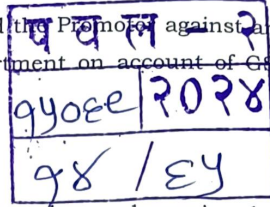 d the Promotor against a
प व ल - २
rtment on account of GS
१५०६९ २०२४
१४ / ६५